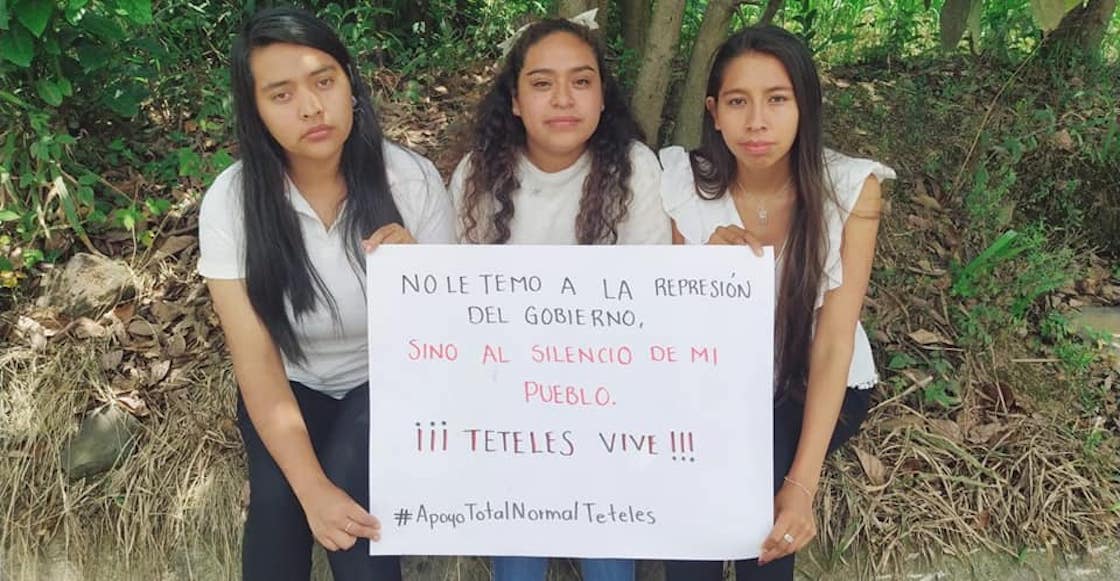 NO LE TEMO A LA REPRESIÓN
DEL GOBIERNO,
SINO AL SILENCIO DE MI
PUEBLO.
¡¡¡ TETELES VIVE !!!
#ApoyoTotalNormalTeteles